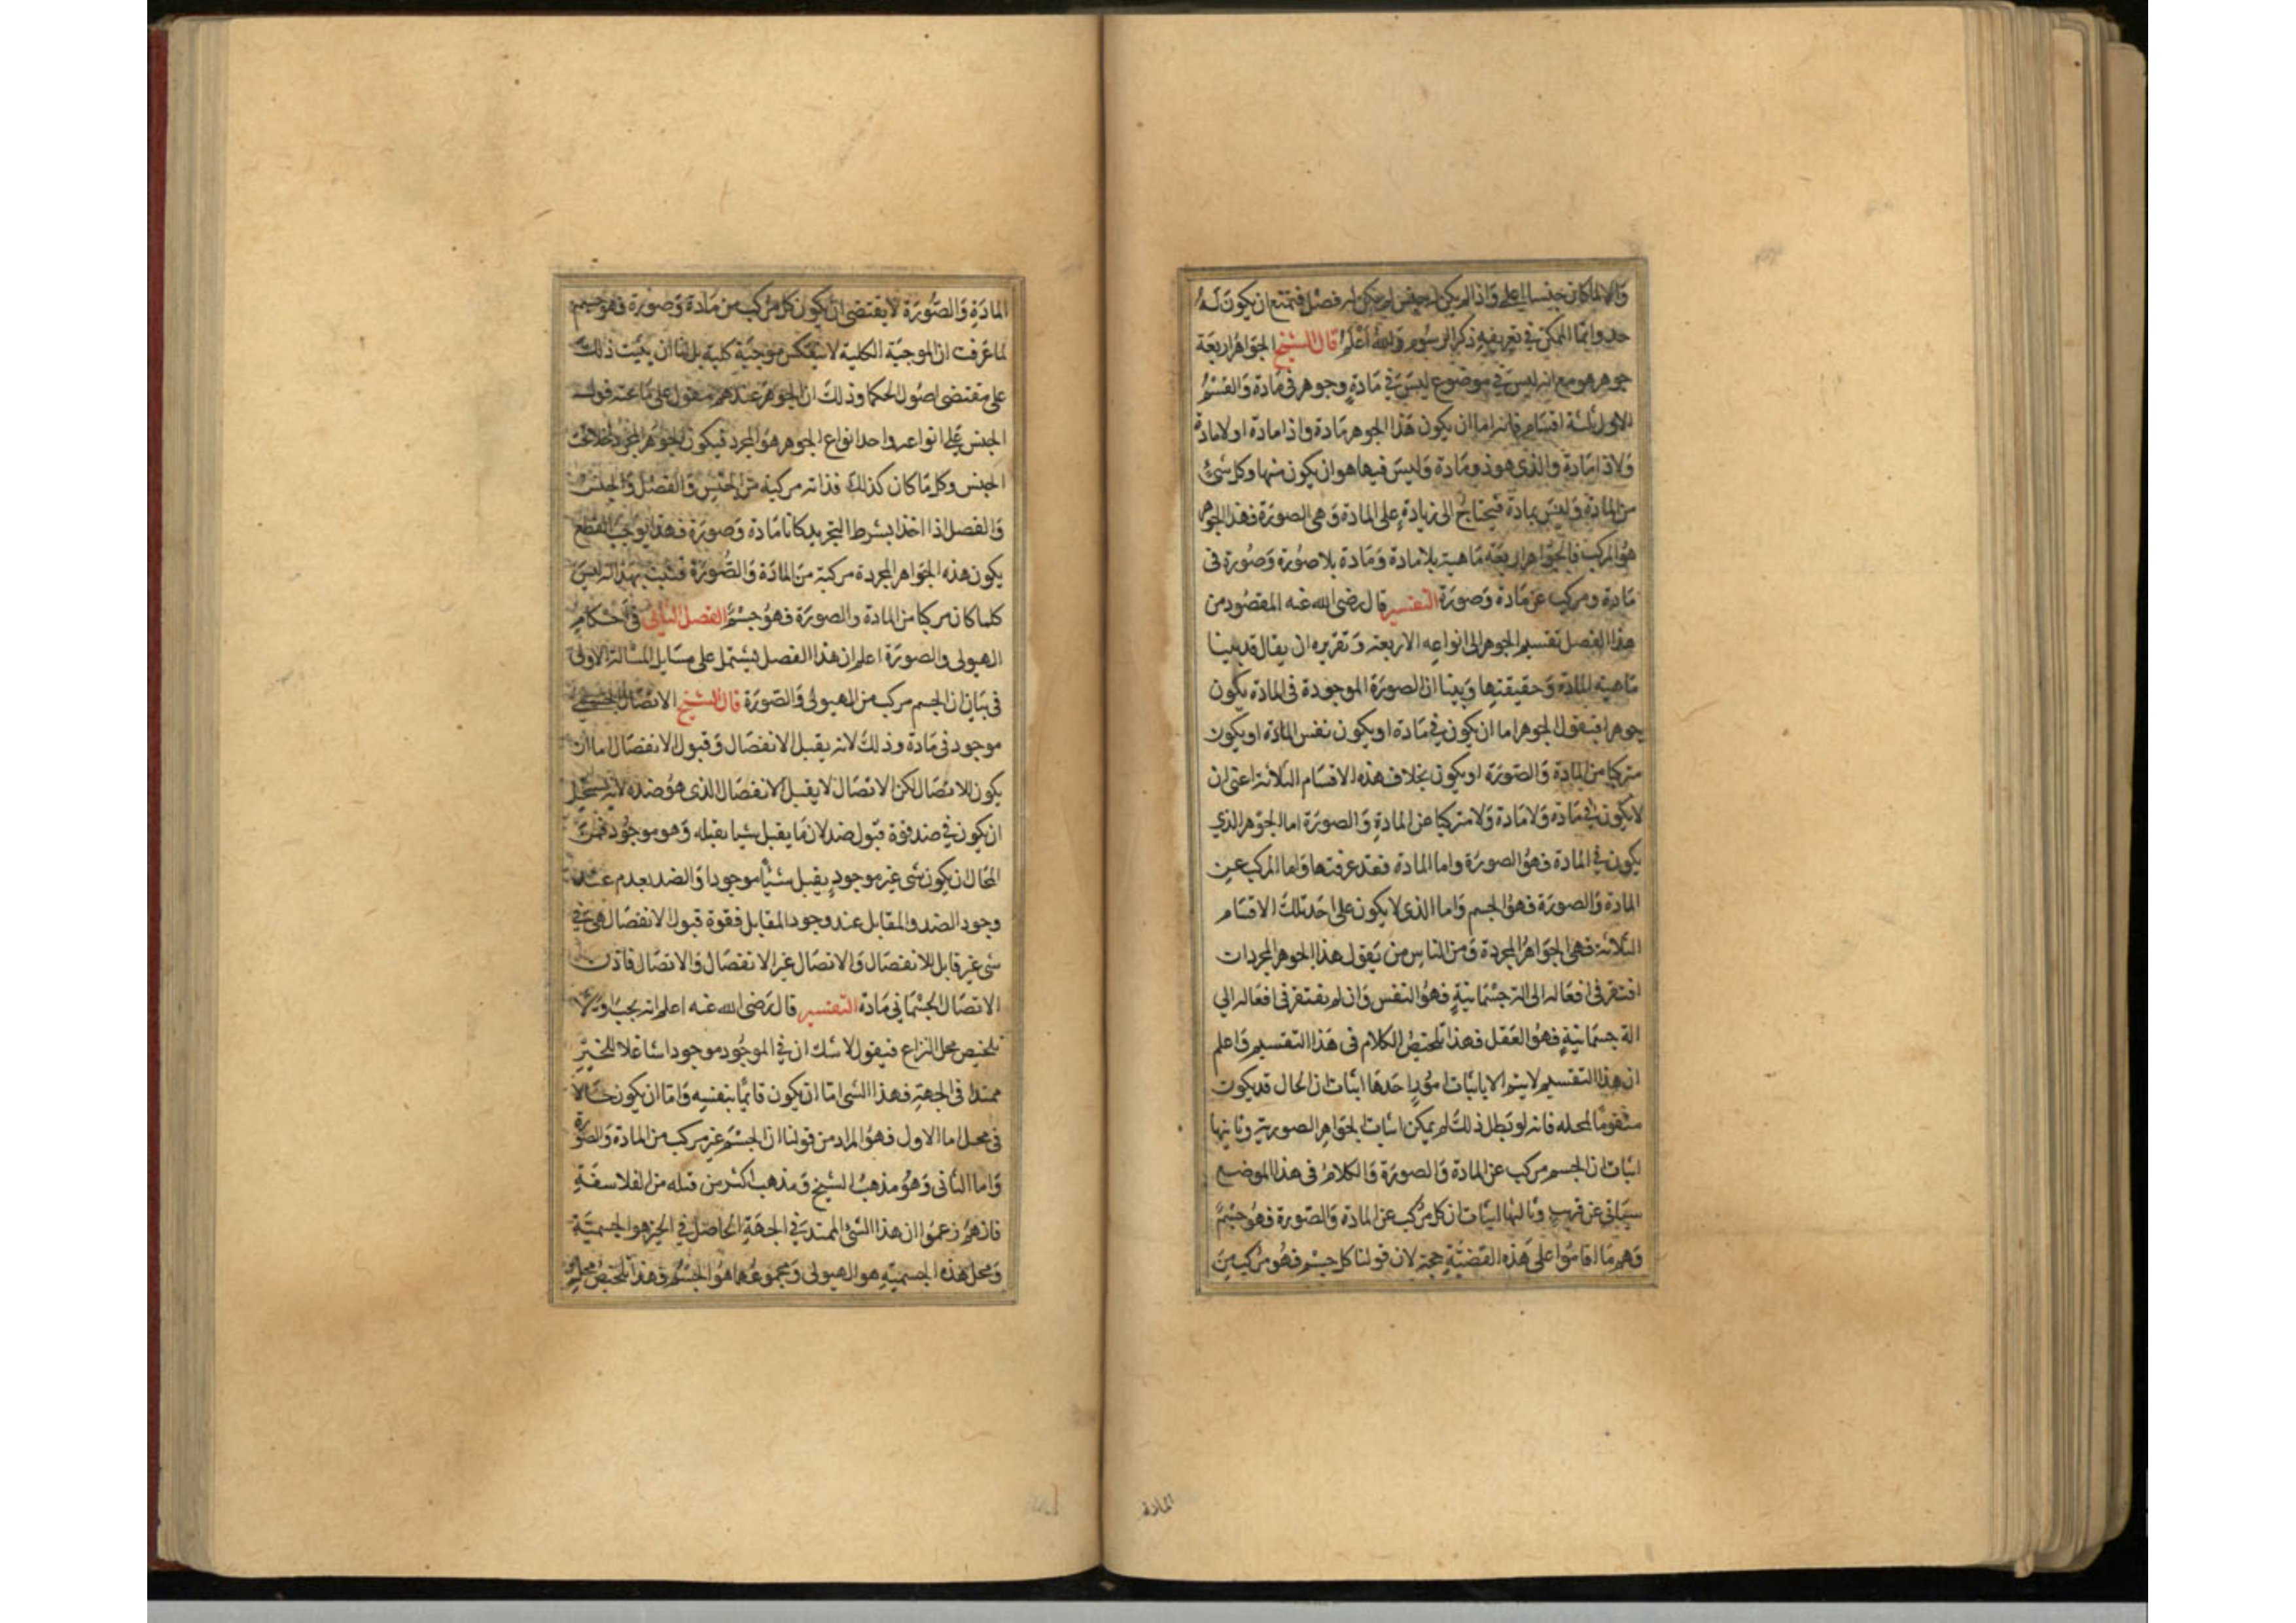 والا لما كان جنسا اعلى واذا لم يكن له جنس لم يكن له فصل فيمتنع ان يكون له
حد وانما الممكن في تعريفه ذكر الرسوم والله أعلم قال الشيخ الجواهر اربعة
جوهر هو مع انه ليس في موضوع ليس في مادة وجوهر في مادة والقسم
الاول ثلثة اقسام فانه اما ان يكون هذا الجوهر مادة واذا مادة او لا مادة
ولا ذا مادة والذى هو ذو مادة وليس فيها هو ان يكون منها وكل شئ
من المادة وليس بمادة فيحتاج الى زيادة على المادة وهى الصورة فهذا الجوهر
هو المركب فالجواهر اربعة ماهية بلا مادة ومادة بلا صورة وصورة فى
مادة ومركب عن مادة وصورة التفسير قال رضى الله عنه المقصود من
هذا الفصل تقسيم الجوهر الى انواعه الاربعة وتقريره ان يقال قد بينا
ماهية المادة وحقيقتها وبينا ان الصورة الموجودة فى المادة يكون
جوهرا فنقول الجوهر اما ان يكون في مادة او يكون نفس المادة او يكون
متركبا من المادة والصورة او يكون بخلاف هذه الاقسام الثلاثة اعنى ان
لا يكون في مادة ولا مادة ولا متركبا عن المادة والصورة اما الجوهر الذي
يكون في المادة فهو الصورة واما المادة فقد عرفتها واما المركب عن
المادة والصورة فهو الجسم واما الذى لا يكون على احد تلك الاقسام
الثلاثة فهى الجواهر المجردة ومن الناس من يقول هذا الجوهر المجرد ان
افتقر فى افعاله الى الة جسمانية فهو النفس وان لم يفتقر فى افعاله الي
الة جسمانية فهو العقل فهذا تلخيص الكلام فى هذا التقسيم واعلم
ان هذا التقسيم لا يتم الا باثبات امور احدها اثبات ان الحال قد يكون
متقوما لمحله فانه لو بطل ذلك لم يمكن اثبات الجواهر الصورية وثانيها
اثبات ان الجسم مركب عن المادة والصورة والكلام فى هذا الموضع
سياتى عن قريب وثالثها اثبات ان كل مركب عن المادة والصورة فهو جسم
وهم ما اقاموا على هذه القضية حجة لان قولنا كل جسم فهو مركب من
المادة
المادة والصورة لا يقتضى ان يكون كل مركب من مادة وصورة فهو جسم
لما عرفت ان الموجبة الكلية لا تنعكس موجبة كلية بل لنا ان نثبت ذلك
على مقتضى اصول الحكما وذلك ان الجوهر عندهم مقول على ما تحته قول
الجنس على انواعه واحد انواع الجوهر هو المجرد فيكون الجوهر المجرد داخلا تحت
الجنس وكل ما كان كذلك فذاته مركبة من الجنس والفصل والجنس
والفصل اذا اخذا بشرط التجريد كانا مادة وصورة فهذا يوجب القطع
يكون هذه الجواهر المجردة مركبة من المادة والصورة فثبت بهذا انه ليس
كلما كان مركبا من المادة والصورة فهو جسم الفصل الثاني فى احكام
الهيولى والصورة اعلم ان هذا الفصل يشتمل على مسايل المسالة الاولى
فى بيان ان الجسم مركب من الهيولى والصورة قال الشيخ الاتصال الجسمى
موجود فى مادة وذلك لانه يقبل الانفصال وقبول الانفصال اما ان
يكون للاتصال لكن الاتصال لا يقبل الانفصال الذى هو ضده لانه يستحيل
ان يكون في ضد قوة قبول ضد لان ما يقبل شيا يقبله وهو موجود فمن
المحال ان يكون شى غير موجود يقبل شيئا موجودا والضد يعدم عند
وجود الضد والمقابل عند وجود المقابل فقوة قبول الانفصال هى في
شى غير قابل للانفصال والاتصال غير الانفصال والاتصال فاذن
الاتصال الجسمانى مادة التفسير قال رضى الله عنه اعلم انه يجب اولا
تلخيص محل النزاع فنقول لا شك ان في الموجود موجودا شاغلا للحيز
ممتدا فى الجهة فهذا الشى اما ان يكون قائما بنفسه واما ان يكون حالا
فى محل اما الاول فهو المراد من قولنا ان الجسم غير مركب من المادة والصورة
واما الثانى وهو مذهب الشيخ ومذهب اكثر من قبله من الفلاسفة
فانهم زعموا ان هذا الشئ الممتد في الجهة الحاصل في الحيز هو الجسمية
ومحل هذه الجسمية هو الهيولى ومجموعهما هو الجسم فهذا تلخيص محل